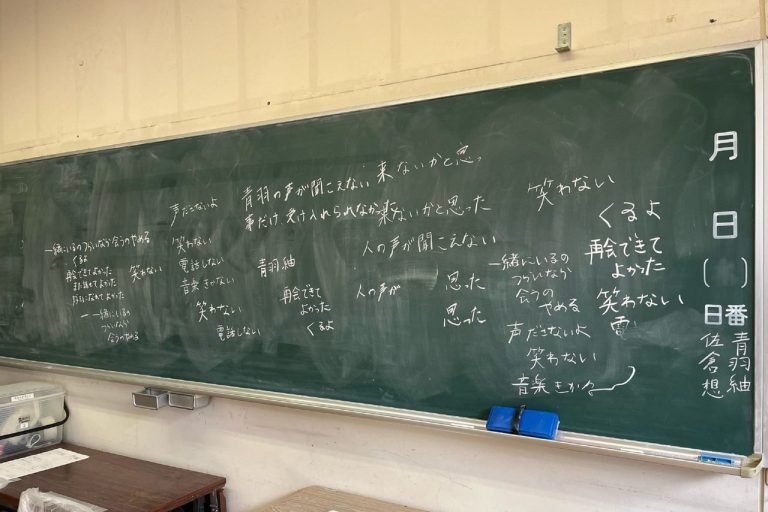 月 日 ( )
日番 青羽紬
佐倉想
青羽の声が聞こえない 来ないかと思っ
事だけ 受け入れられなか 来ないかと思った
人の声が聞こえない
人の声が
思った
思った
笑わない
くるよ
再会できて
よかった
笑わない
一緒にいるの
つらいなら
会うの
やめる
声ださないよ
笑わない
音楽きか
声ださないよ
笑わない
電話しない
音楽きかない
笑わない
電話しない
青羽紬
再会できて
よかった
くるよ
一緒にいるのつらいなら会うのやめる
くるよ
再会できてよかった
また話せてよかった
笑わない
一緒にいるの
つらいなら
会うのやめる